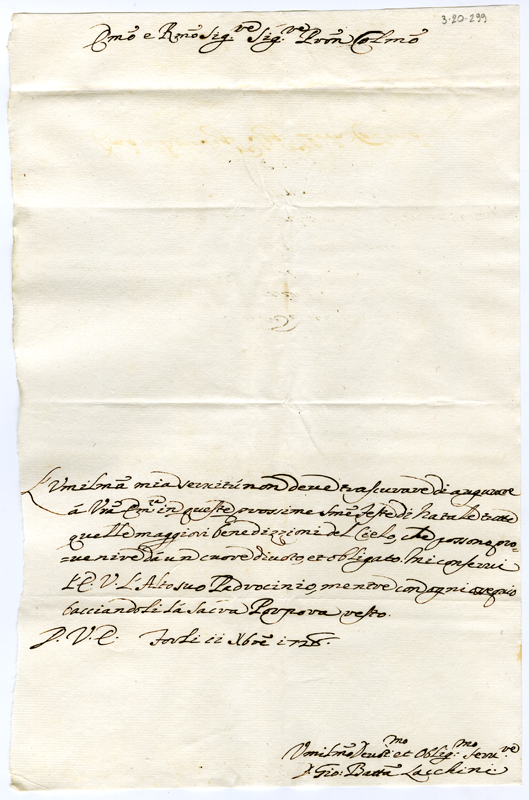 3-20-299
Emo e Rmo Sig.re Sig.re Pron Colmo
L'Umilma mia servitù non deve trascurare di augurare
à Vra Emza in queste prossime Sme feste di Natale tutte
quelle maggiori benedizzioni del Cielo, che possono pro=
=uenire dà un cuore diuoto, et obligato. Mi conservi
l'E: V. l'Alto suo Padrocinio, mentre con ogni
bacciandoli la Sacra Porpora resto.
D. V. E: Forlì 11 Xbre 1726.
Umilmo Deuotmo et Obligmo Serure
Gio: Batta Lacchini